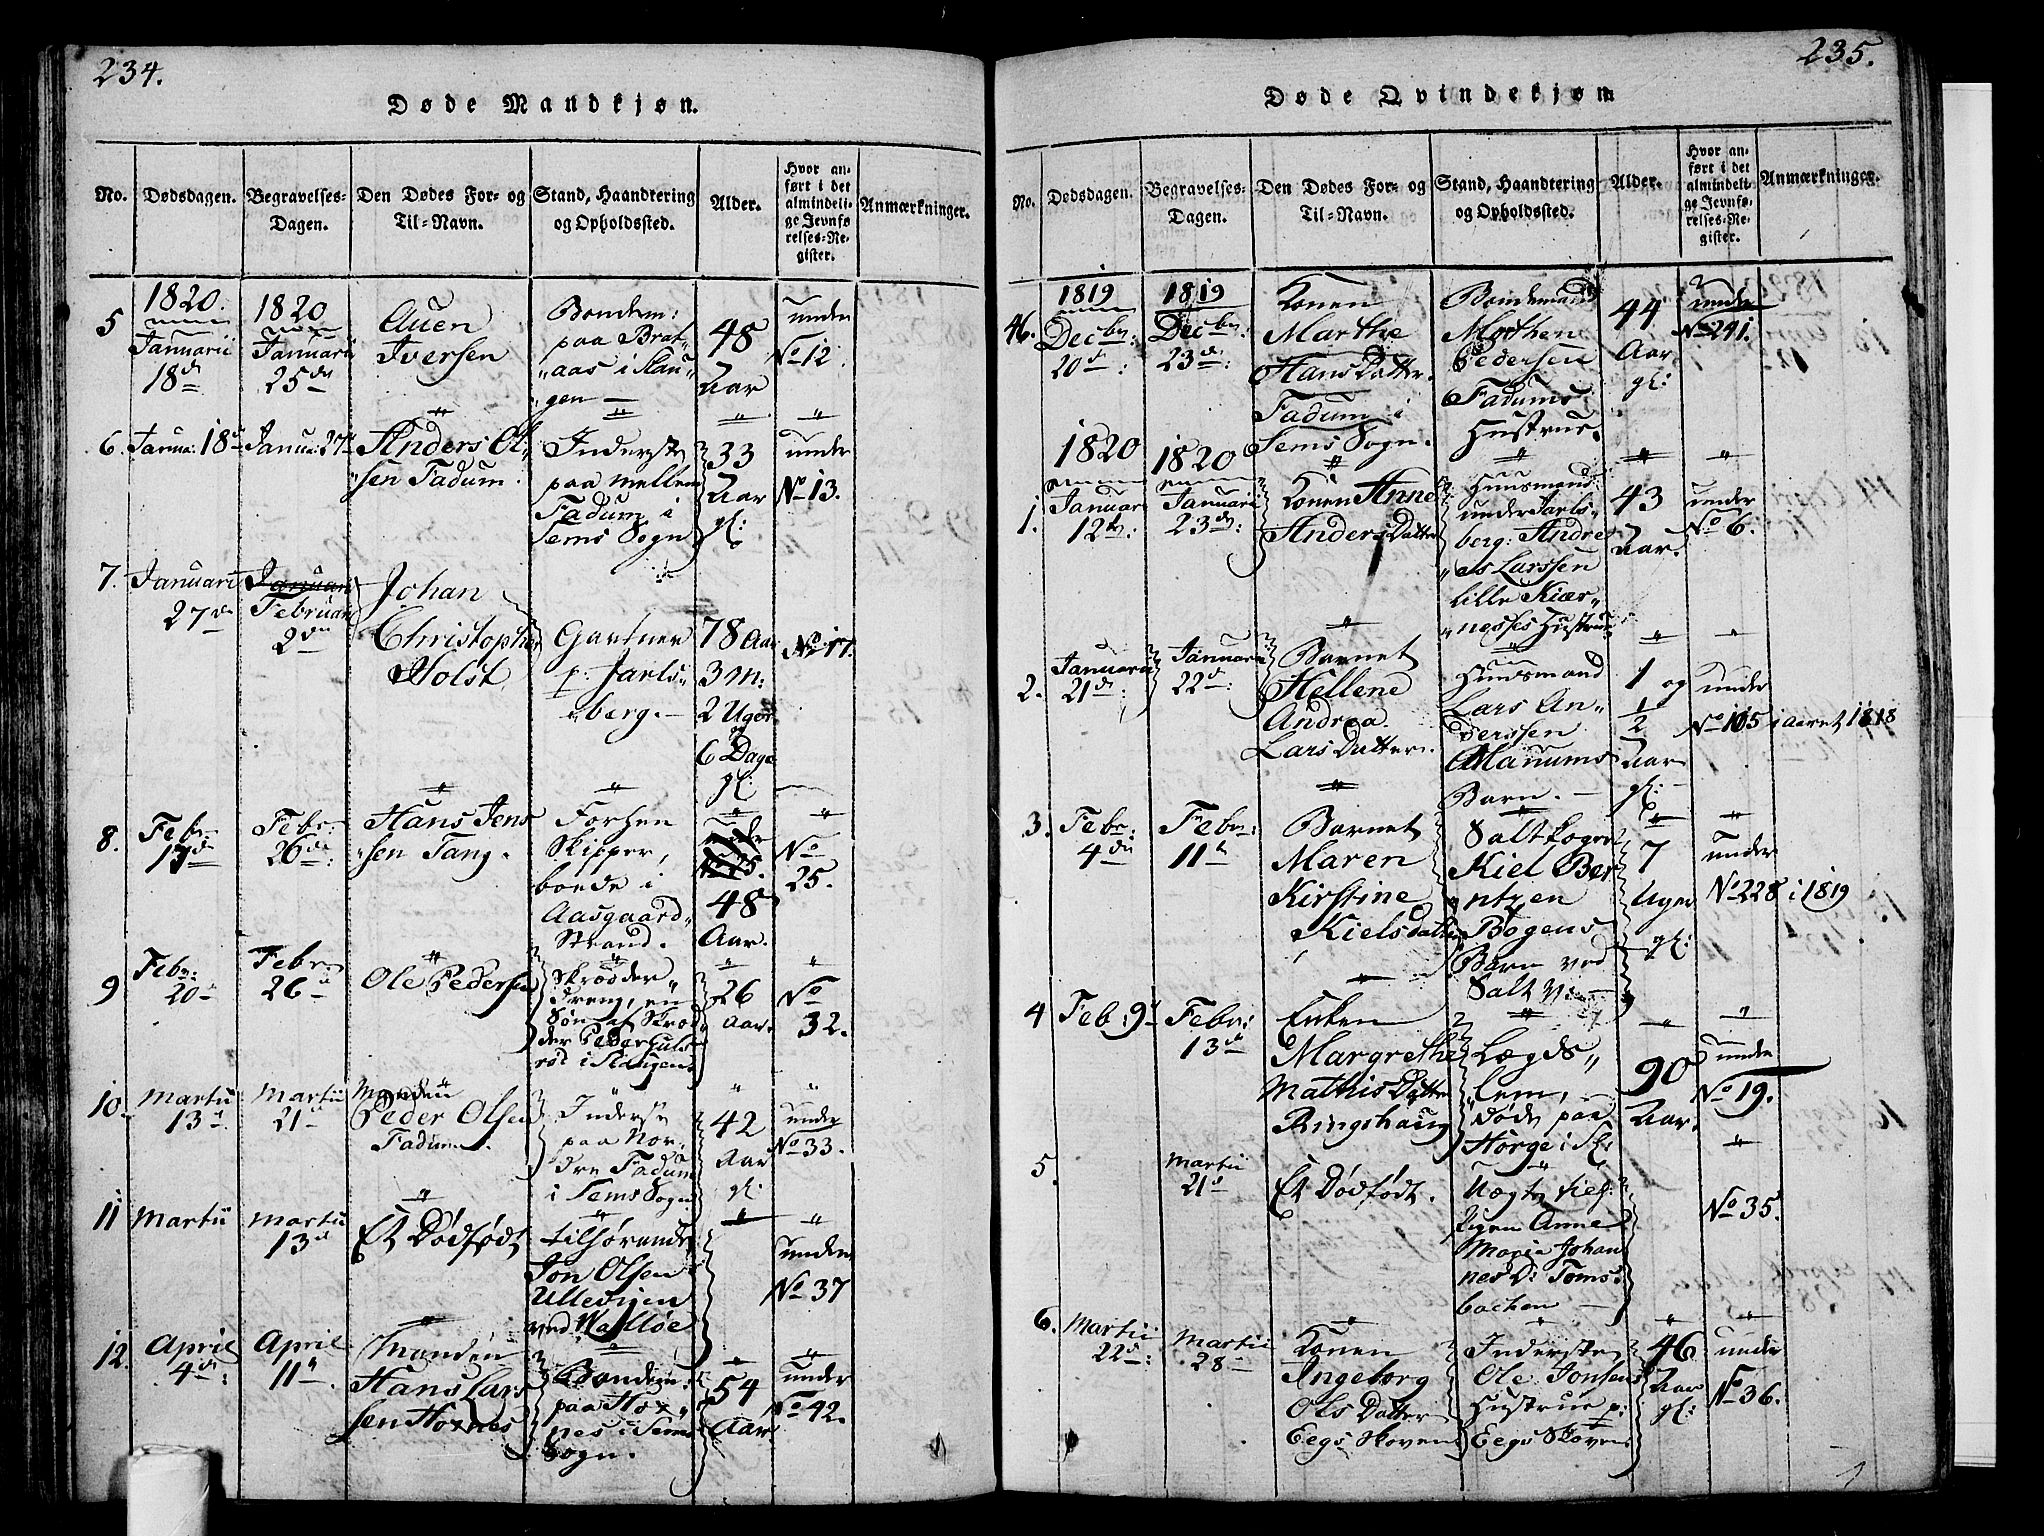 234.
Døde Mandkjøn.
No.
Dødsdagen.
Begravelses-
Dagen.
Den Dødes For- og
Til-Navn.
Stand, Haandtering
og Opholdssted.
Alder.
Hvor an-
ført i det
almindeli-
ge Jevnfø-
relses-Re-
gister.
Anmærkninger.
5
1820.
Januarii
18d
1820
Januarii
25de
Auen
Iversen
Bondem:
paa Brat-
"aas i Slau"
"gen —
48
Aar
under
No 12
6.
Janua: 18d
Janua: 27d
Anders Ol"
"sen Fadum.
Inderste
paa mellem
Fadum i
Sems Sogn
33
Aar
gl:
under
No 13.
7.
Januarii
27de
Februarii
2den
Johan
Christopher
Holst
Gartner
p: Jarls-
"berg.—
78 Aar
3 M:
2 Uger
og
6 Dage
gl:
No 17.
8.
Febr:
Febr:
26de:
Hans Jens
"sen Tang.
Forhen
Skipper,
boede i
Aasgaard"
Strand.
48
Aar.
No
25.
9
Febr:
20d
Febr:
26d
Ole Pedersen
Skrædder"
dreng, en
Søn af Skræd"
der Peder Huls
rød i Slaugens
26
Aar.
No
32.
10.
Martii
13d
Martii
21d
Manden
Peder Olsen
Fadum.
Inderste
paa Nor"
dre Fadum
i Sems Sogn
42
Aar
gl:
under
No 33.
11
Martii
Martii
13d
Et Dødfødt
tilhørende
Jon Olsen
Ullevigen
ved Walløe
under
No 37
12.
April
4de:
April
11te
Manden
Hans Lars
sen Hoxnes
Bondem:
paa Hox"
nes i Sems
Sogn.
54
Aar
under
No 42.
235.
Døde Qvindekjøn
No.
Dødsdagen.
Begravelses-
Dagen.
Den Dødes For- og
Til-Navn.
Stand, Haandtering
og Opholdssted.
Alder.
Hvor an-
ført i det
almindeli-
ge Jevnfø-
relses-Re-
gister.
Anmærkninger.
46.
1819
Decbr:
20d:
1819
Decbr:
23d:
Konen
Marthe
Hans Datter.
Fadum i
Sems Sogn.
Bondemand
Morthen
Pedersen
Fadums
Hustrue.
44
Aar
gl:
under
No 241.
1.
1820
Januarii
12te:
1820
Januarii
23de:
Konen Anne
Anders Datter
Huusmand
under Jarls"
berg: Andre"
"as Larssen
Lille Kiær"
"nesses Hustrue
43
Aar.
under
No 6.
2.
Januarii
21d:
Januarii
22d:
Barnet
Hellene
Andrea
Lars Datter.
Huusmand
Lars An"
derssen
Manums
Barn.—
1 og
1/2
Aar
gl:
under
No 105 i aaret 1818
3.
Febr:
4de
Febr:
11te
Barnet
Maren
Kirstine
Kiels datter
Kiel Ber
ntzen
Bogens
Barn ved
Salt V: —
7
Uger
gl:
under
No 228 i 1819
4
Feb: 9d
Febr:
13de
Enken
Margrethe
Mathis Datter
Ringshaug
Lægds"
"lem,
døde paa
Horge i Sl:
90
Aar.
under
No 19.
5.
Martii
21d
Et Dødfødt.
Uægte fiel:
Pigen Anne
Maria Johan
nes D: Toms"
bachen —
No 35.
6.
Martii
22d:
Martii
28
Konen
Ingeborg
Ols Datter
Eegs Skoven
Inderste
Ole Jonsens
Hustrue p:
Eegs Skoven
46
Aar
gl:
under
No 36.